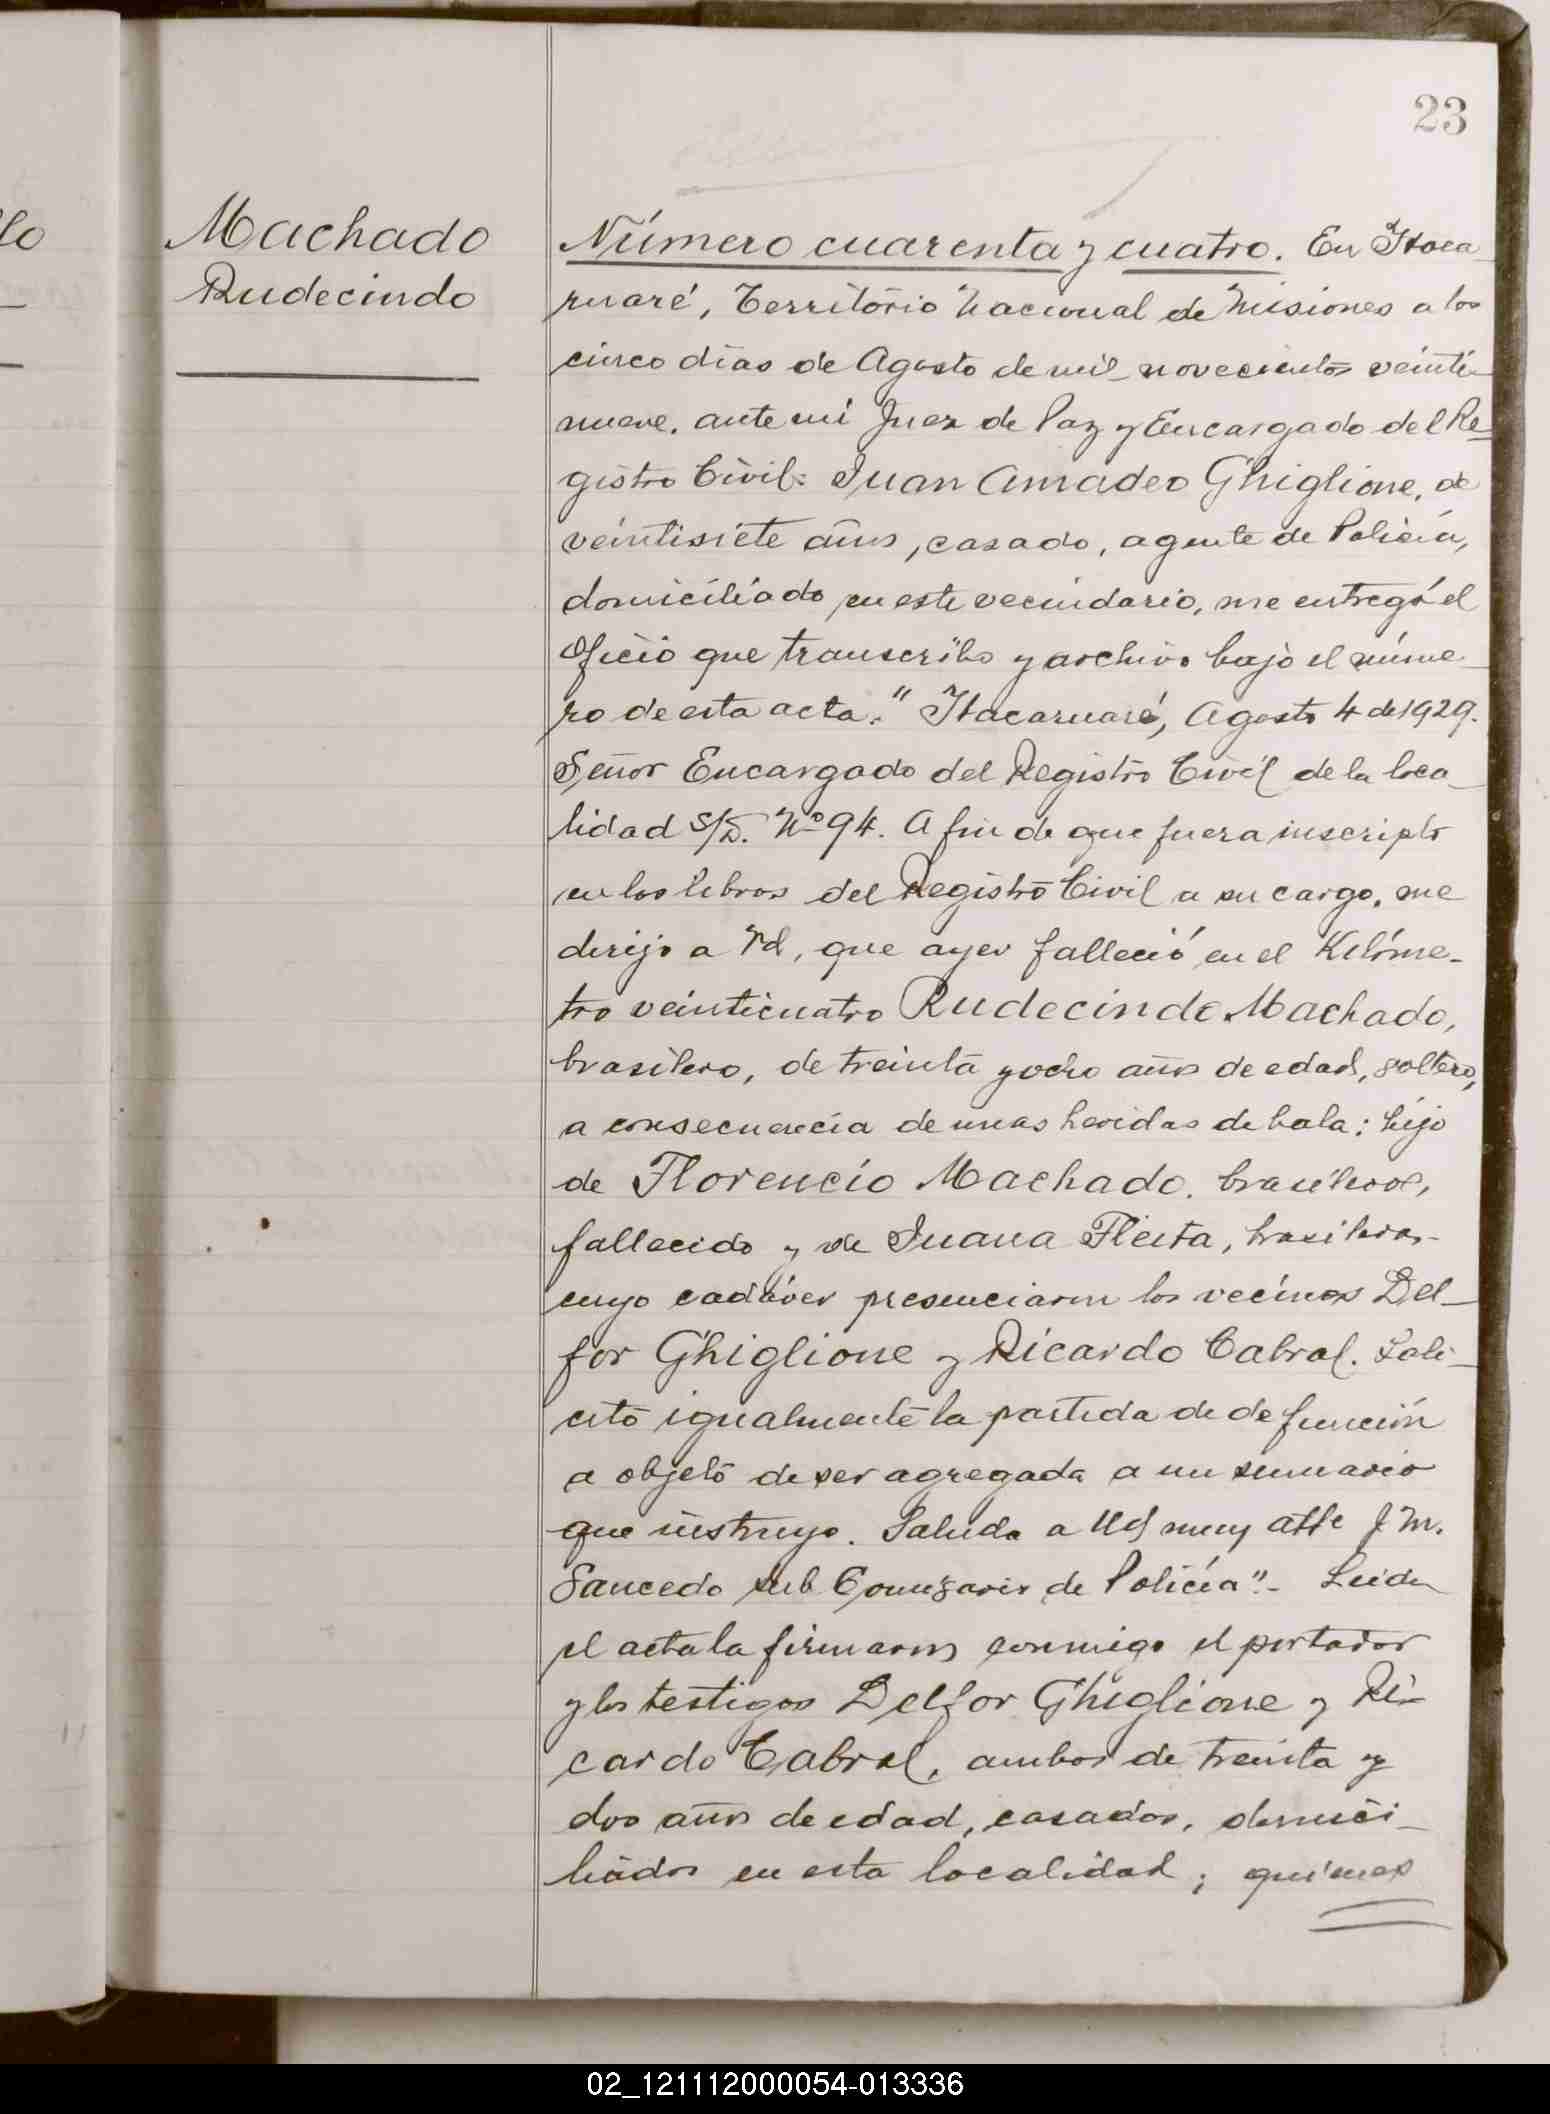 23
Machado
Rudecindo
Número cuarenta y cuatro. En Itaca
ruaré, Territorio Nacional de Misiones a los
cinco días de Agosto de mil novecientos veinti-
nueve. ante mi Juez de Paz y Encargado del Re-
gistro Civil: Juan Amadeo Ghiglione, de
veintisiete años, casado, agente de Policía,
domiciliado en este vecindario, me entregó el
Oficio que transcribo y archivo bajo el núme-
ro de esta acta." Itacaruaré, Agosto 4 de 1929.
Señor Encargado del Registro Civil de la loca-
lidad S/D. Nº 94. A fin de que fuera inscripto
en los libros del Registro Civil a su cargo, me
dirijo a Vd, que ayer falleció en el Kilóme-
tro veinticuatro Rudecindo Machado,
brasilero, de treinta y ocho años de edad, soltero,
a consecuencia de unas heridas de bala; hijo
de Florencio Machado. brasilero,
fallecido y de Juana Fleita, brasilera-
cuyo cadáver presenciaron los vecinos Del-
for Ghiglione y Ricardo Cabral. Soli-
cito igualmente la partida de defunción
a objeto de ser agregada a un sumario
que instruyo. Saludo a Ud muy atte J. M.
Saucedo sub Comisario de Policía".- Leida
el acta la firmaron conmigo el portador
y los testigos Delfor Ghiglione y Ri-
cardo Cabral, ambos de treinta y
dos años de edad, casados, domici-
liados en esta localidad; quienes
02_121112000054-013336